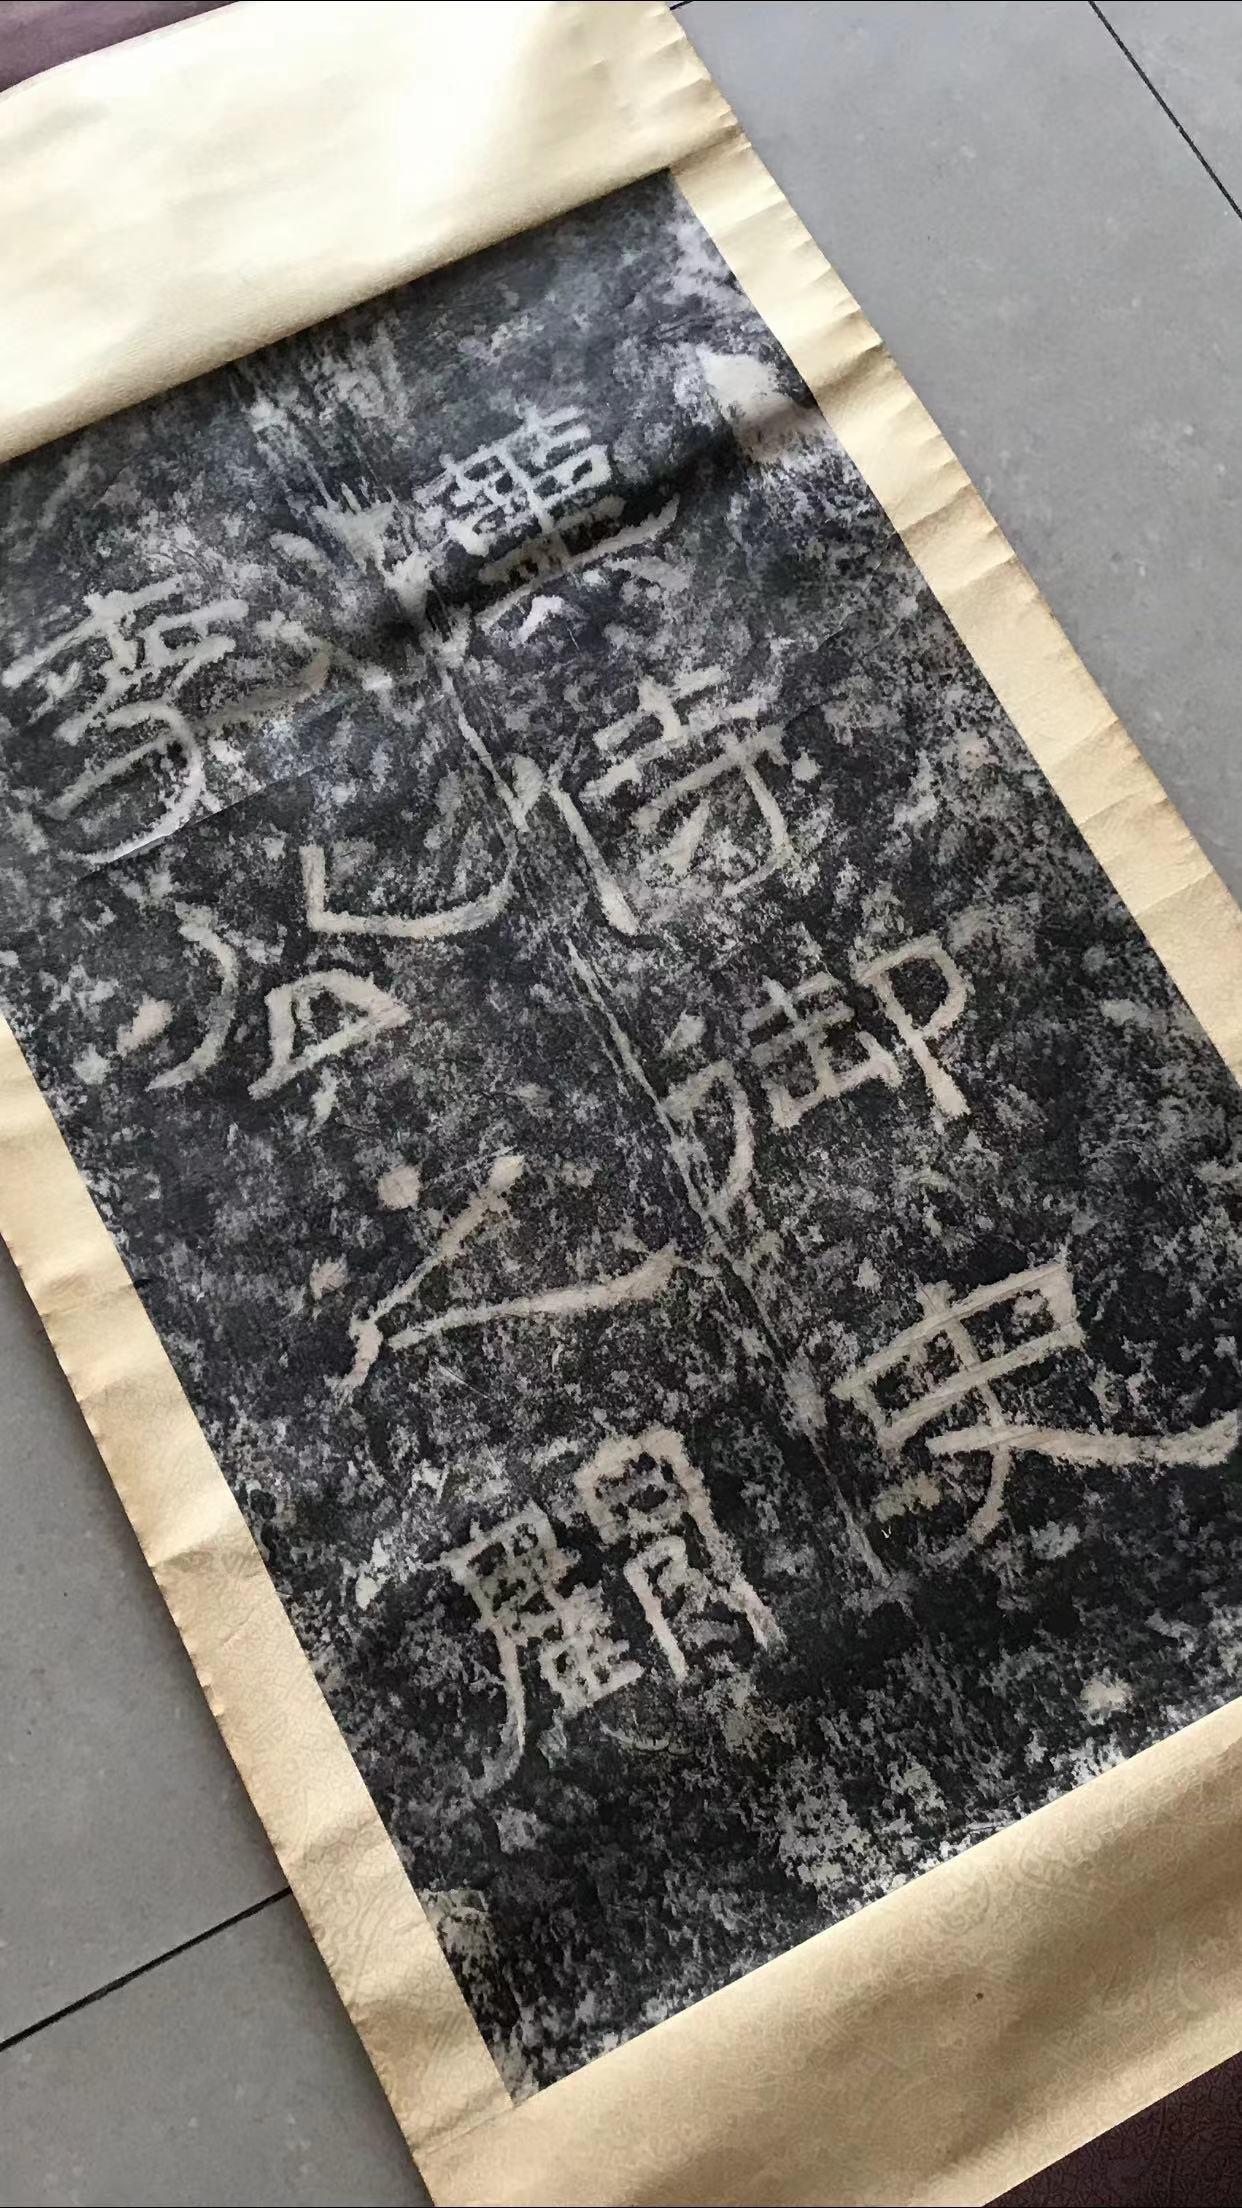 漢侍御史
李公之闕